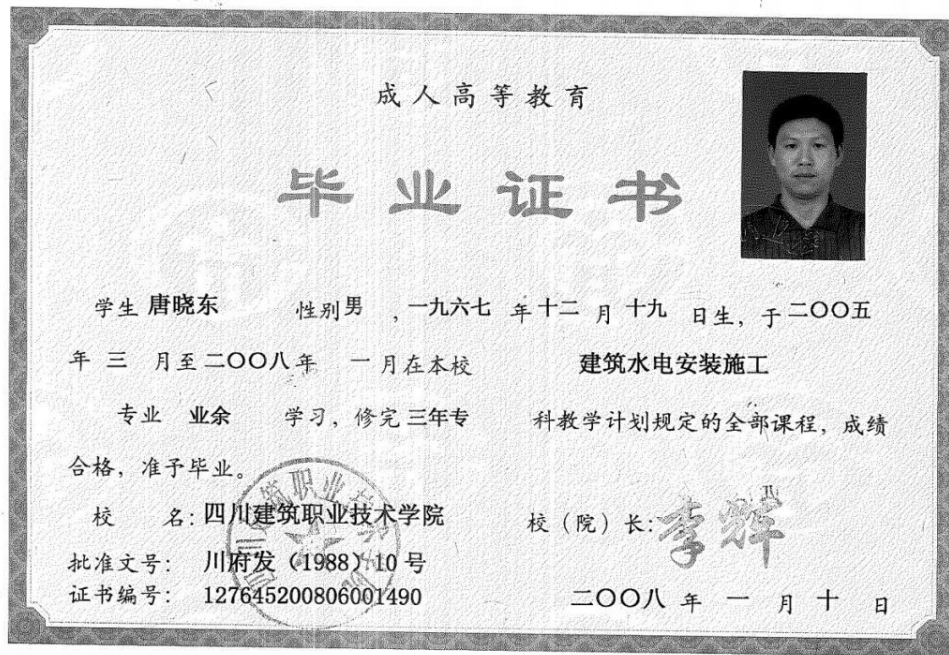 成人高等教育
毕业证书
学生 唐晓东 性别 男 ，一九六七 年 十二 月 十九 日生，于 二〇〇五
年 三 月至 二〇〇八 年 一 月在本校 建筑水电安装施工
专业 业余 学习，修完 三年专 科教学计划规定的全部课程，成绩
合格，准予毕业。
校 名：四川建筑职业技术学院
校（院）长：李辉
批准文号： 川府发（1988）10 号
证书编号： 127645200806001490
二〇〇八 年 一 月 十 日
四川建筑职业技术学院